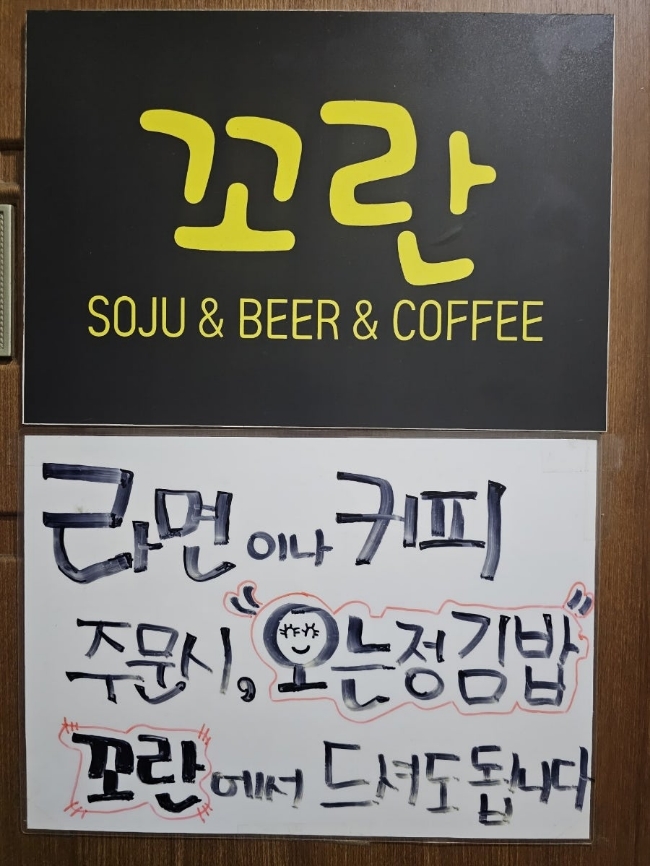 꼬란
SOJU & BEER & COFFEE
라면이나 커피
주문시, "오는정김밥"
꼬란에서 드셔도 됩니다